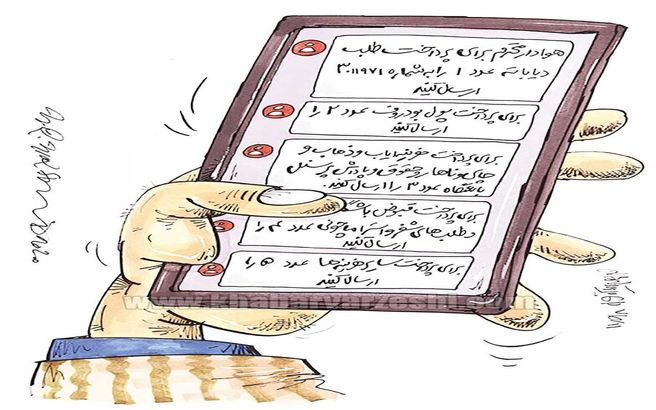 هوادار محترم برای پرداخت طلب
دیاباته عدد ۱ را به شماره ۳۰۱۱۹۷۱
ارسال کنید
برای پرداخت پول بودروف عدد ۲ را
ارسال کنید
برای پرداخت هزینه ایاب و ذهاب و
حقوق و پاداش پرسنل
باشگاه عدد ۳ را ارسال کنید.
برای پرداخت قبوض
و طلب‌های شفر و استراماچونی عدد ۴ را
ارسال کنید
برای پرداخت سایر هزینه‌ها عدد ۵ را
ارسال کنید
www.khabarvarzeshi.com